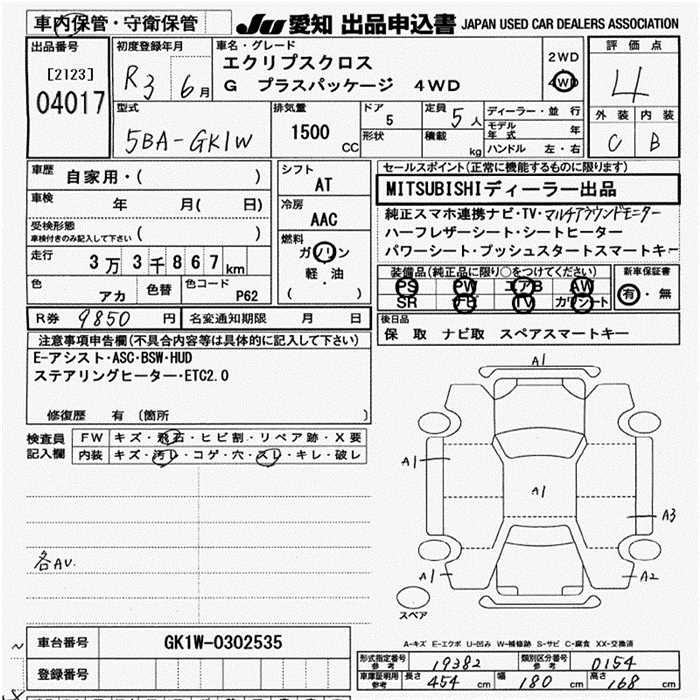 車内保管・守衛保管
JU 愛知 出品申込書 JAPAN USED CAR DEALERS ASSOCIATION
出品番号
[2123]
04017
初度登録年月
R3 6月
車名・グレード
エクリプスクロス
G プラスパッケージ 4WD
2WD
4WD
評価点
4
外装 内装
C B
型式
5BA-GK1W
排気量
1500 CC
ドア
5
形状
定員
5人
積載
kg
ディーラー・並行
モデル年式 年
ハンドル 左・右
車歴 自家用・( )
車検 年 月( 日)
受検形態
車検付きのみ記入して下さい ( )
走行 3万3千867km
色 アカ 色替 色コード P62
シフト
AT
冷房
AAC
燃料
ガソリン
軽・油
( )
セールスポイント(正常に機能するものに限ります)
MITSUBISHIディーラー出品
純正スマホ連携ナビ・TV・マルチアラウンドモニター
ハーフレザーシート・シートヒーター
パワーシート・プッシュスタートスマートキー
装備品(純正品に限り○をつけてください)
PS PW エアB AW
SR ナビ TV カワシート
新車保証書
有・無
R券 9850円 名変通知期限 月 日
後日品
保 取 ナビ取 スペアスマートキー
注意事項申告欄(不具合内容等は具体的に記入して下さい)
E-アシスト・ASC・BSW・HUD
ステアリングヒーター・ETC2.0
修復歴 有 (箇所 )
検査員記入欄
FW キズ・飛石・ヒビ割・リペア跡・X要
内装 キズ・汚レ・コゲ・穴・スレ・キレ・破レ
各AU.
A1
A1
A1
A3
A1
A2
スペア
A-キズ E-エクボ U-凹み W-補修跡 S-サビ C-腐食 XX-交換済
車台番号 GK1W-0302535
登録番号
形式指定番号参考 19382 類別区分番号参考 0154
車庫証明用参考 長さ 454 cm 幅 180 cm 高さ 168 cm